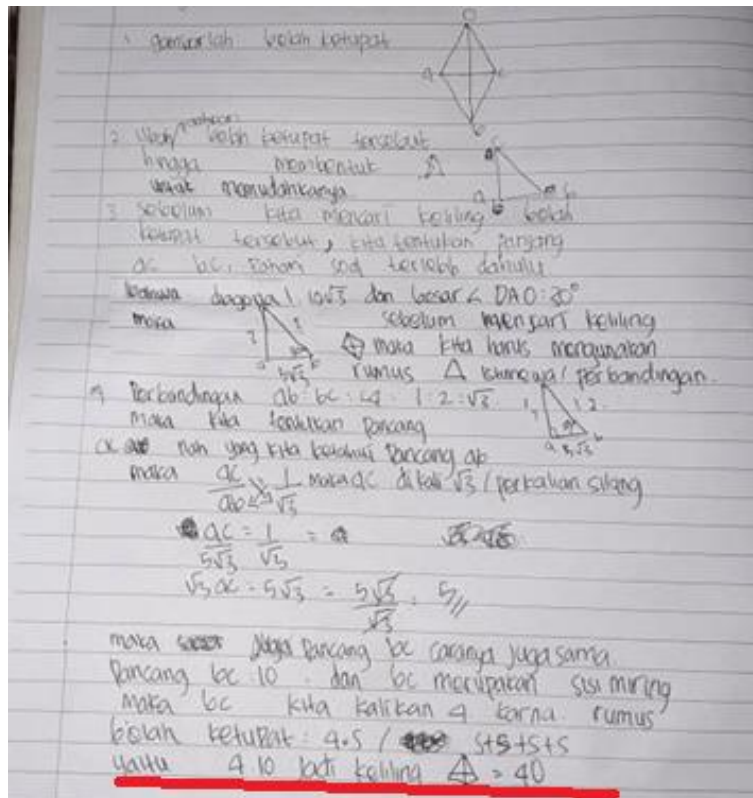 1. gambarlah belah ketupat
D
a c
b
2. Ubah belah ketupat tersebut
hingga membentuk
untuk memudahkanya
3. Sebelum kita mencari keliling belah
ketupat tersebut, kita tentukan panjang
ac bc, terlebih dahulu
bahwa diagogal 10√3 dan besar ∠ DAO: 30°
maka sebelum menjari keliling
maka kita harus mengunakan
5√3 rumus △ istimewa/perbandingan.
Perbandingan ab: bc: 1:2:√3
maka kita tentukan pancang
nah yang kita ketahui pancang ab
maka ac/ab 1/√3 maka ac dikali √3 / perkalian silang
ac/5√3 = 1/√3 =
√3 ac = 5√3 = 5√3/√3 = 5//
maka juga pancang bc caranya juga sama
Pancang bc: 10. dan bc merupakan sisi miring
maka bc kita kalikan 4 karna rumus
belah ketupat: 4.s / s+s+s+s
yaitu 4.10 Jadi keliling = 40